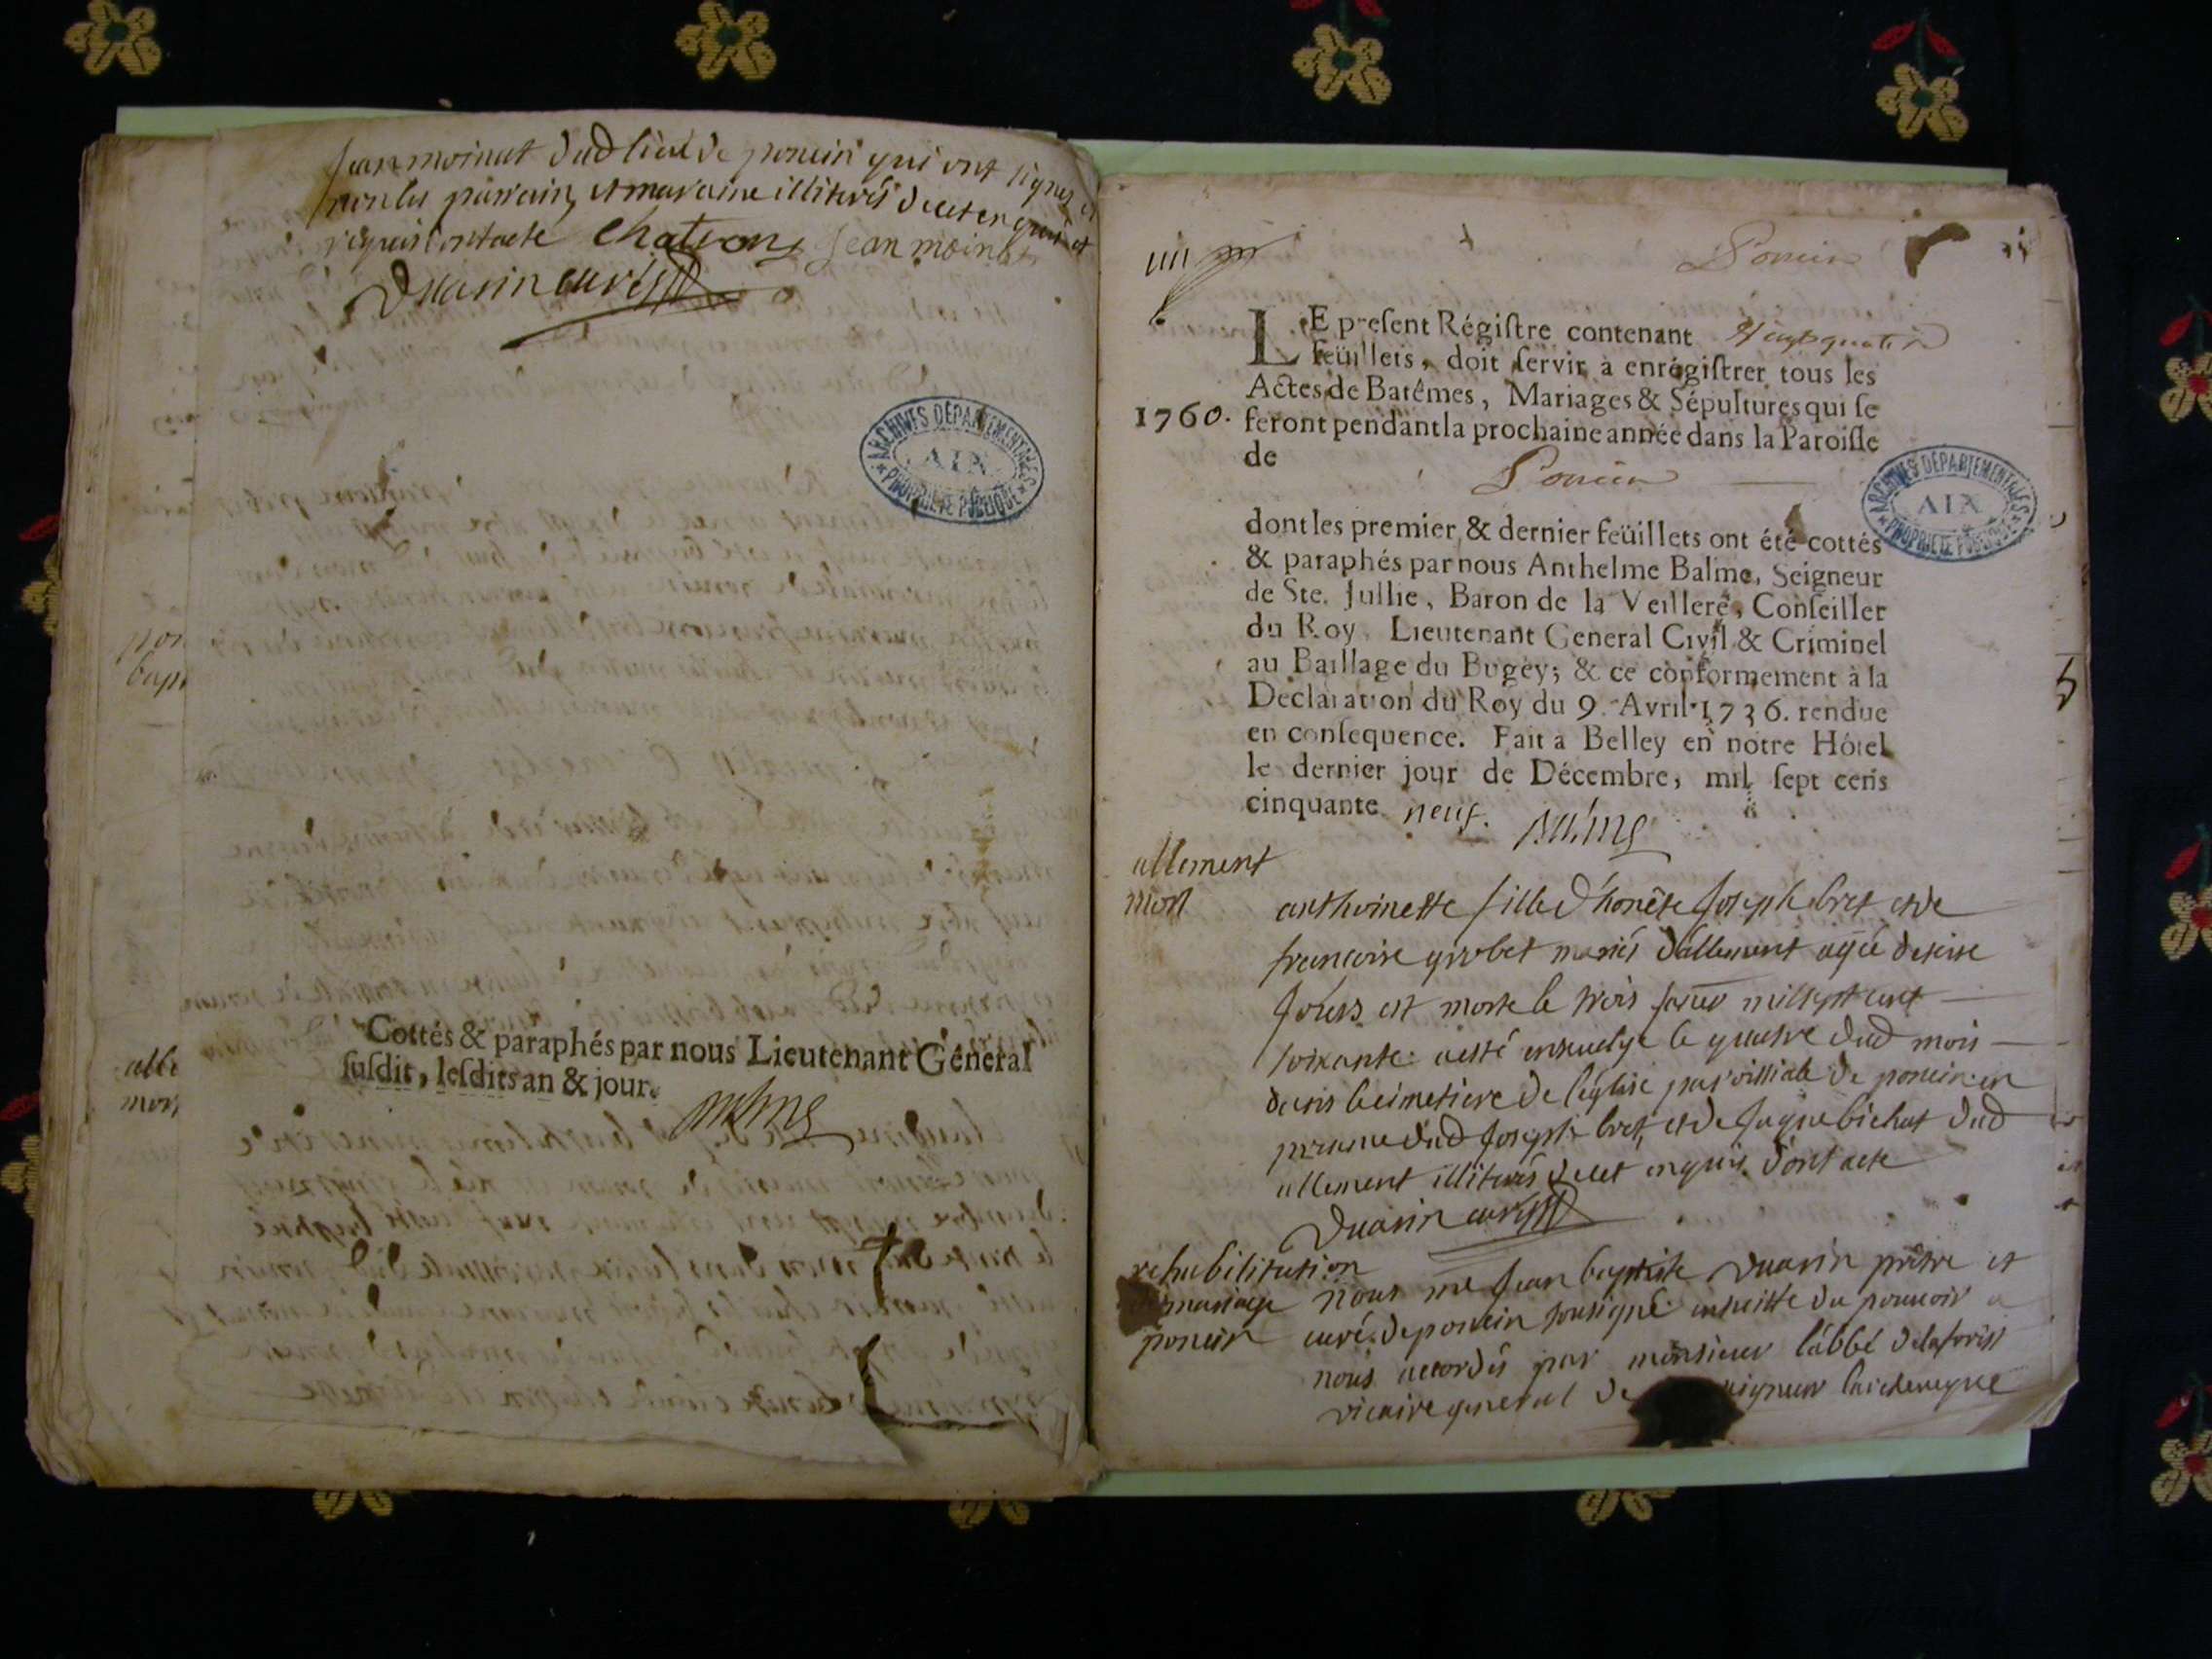 Jean moinat dud lieu de poncin qui ont signez et
non les parrain et maraine illiterés de cet enquis et
requis dont acte Chatron Jean moinat
Duarin curé
ARCHIVES DÉPARTEMENTALES
AIN
PROPRIÉTÉ PUBLIQUE
pon
bapt
alle
mort
Cottés & paraphés par nous Lieutenant Géneral
ſuſdit, leſdits an & jour.
Balme
Poncin
LE preſent Régiſtre contenant Vingt quatre
feüillets, doit ſervir à enrégiſtrer tous les
Actes de Batêmes, Mariages & Sépultures qui ſe
1760. feront pendant la prochaine année dans la Paroiſſe
de Poncin
ARCHIVES DÉPARTEMENTALES
AIN
PROPRIÉTÉ PUBLIQUE
dont les premier & dernier feüillets ont été cottés
& paraphés par nous Anthelme Balme, Seigneur
de Ste. Jullie, Baron de la Veillere, Conſeiller
du Roy, Lieutenant General Civil & Criminel
au Baillage du Bugey; & ce conformement à la
Declaration du Roy du 9. Avril 1736. rendue
en conſequence. Fait à Belley en notre Hôtel
le dernier jour de Décembre, mil ſept cens
cinquante neuf. Balme
allement
mort
anthoinette fille d'honête Joseph bret et de
francoise grobet mariés d'allement agée de seise
jours est morte le trois janer mil sept cent
soixante a esté ensevelye le quatre dud mois
dans le cimetiere de l'église paroissiale de poncin en
presence dud Joseph bret, et de Juque bichat dud
allement illiterés de cet enquis dont acte
Duarin curé
rehabilitation
de mariage
poncin
nous me Jean baptiste Duarin prêtre et
curé de poncin sousigné ensuitte du pouvoir a
nous accordés par monsieur l'abbé delaforest
vicaire general de seigneur l'archeveque